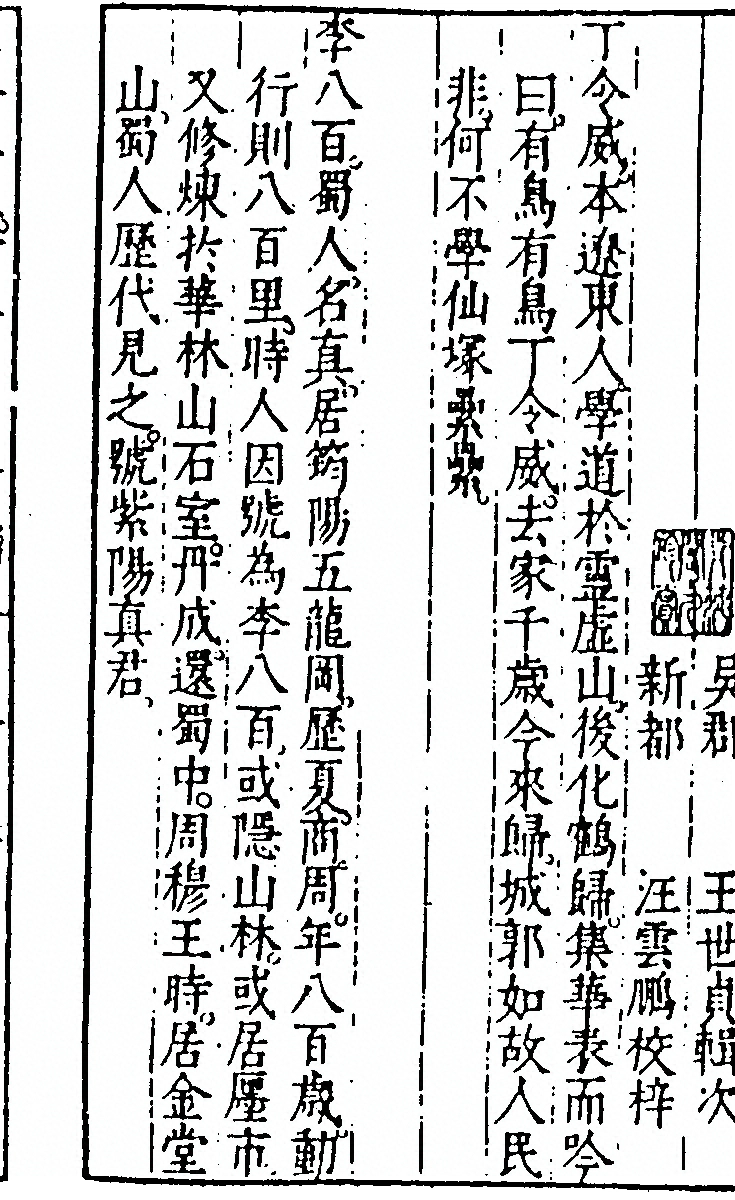 吳郡　王世貞輯次
新都　汪雲鵬校梓
丁令威本遼東人學道於靈虛山後化鶴歸集華表而吟
曰有鳥有鳥丁令威去家千歲今來歸城郭如故人民
非何不學仙塚纍纍
李八百蜀人名真居筠陽五龍岡歷夏商周年八百歲動
行則八百里時人因號為李八百或隱山林或居廛市
又修煉於華林山石室丹成還蜀中周穆王時居金堂
山蜀人歷代見之號紫陽真君